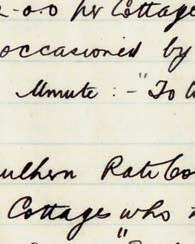 -0-0 per Cottage
occasioned by
Minute :- "To
uthern Rate
Cottages who